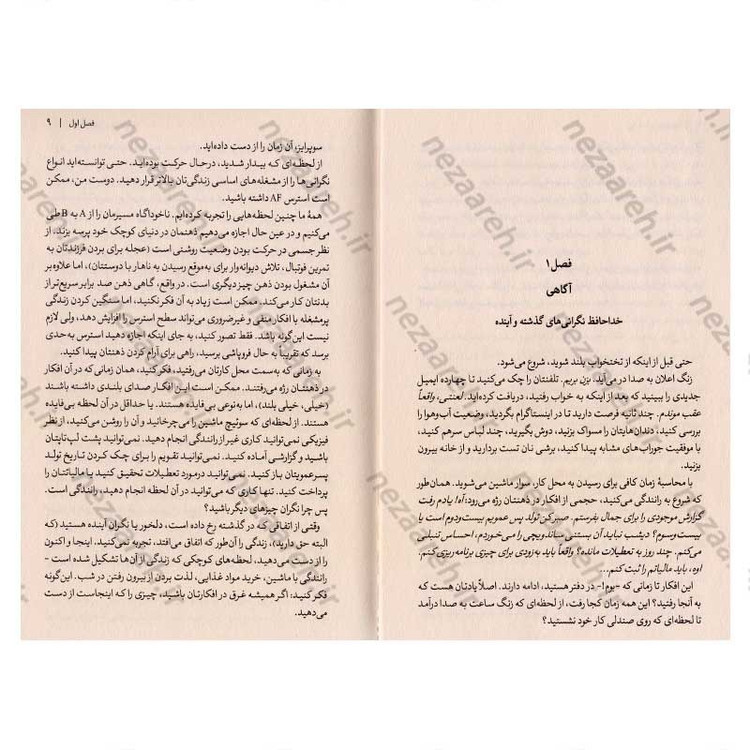 فصل ۱
آگاهی
خداحافظ نگرانی‌های گذشته و آینده
حتی قبل از اینکه از تختخواب بلند شوید، شروع می‌شود.
زنگ اعلان به صدا در می‌آید. بزن بریم. تلفنتان را چک می‌کنید تا چهارده ایمیل
جدیدی را ببینید که بعد از آنکه به خواب رفتید، دریافت کرده‌اید. لعنتی، واقعاً
عقب موندم. چند ثانیه فرصت دارید تا در اینستاگرام بگردید، وضعیت آب‌وهوا را
بررسی کنید، دندان‌هایتان را مسواک بزنید، دوش بگیرید، چند لباس سرهم کنید،
با موفقیت جوراب‌های مشابه پیدا کنید، برشی نان تست بردارید و از خانه بیرون
بزنید.
با محاسبهٔ زمان کافی برای رسیدن به محل کار، سوار ماشین می‌شوید. همان‌طور
که شروع به رانندگی می‌کنید، حجمی از افکار در ذهنتان رژه می‌رود: آه! یادم رفت
گزارش موجودی را برای جمال بفرستم. صبر کن تولد پسر عمویم بیست‌ودوم است یا
بیست‌وسوم؟ دیشب نباید آن بستنی ساندویچی را می‌خوردم، احساس تنبلی
می‌کنم. چند روز به تعطیلات مانده؟ واقعاً باید به‌زودی برای چیزی برنامه‌ریزی کنم.
اوه، باید مالیاتم را ثبت کنم...
این افکار تا زمانی که -بوم!- در دفتر هستید، ادامه دارند. اصلاً یادتان هست که
به آنجا رفتید؟ این همه زمان کجا رفت، از لحظه‌ای که زنگ ساعت به صدا درآمد
تا لحظه‌ای که روی صندلی کار خود نشستید؟
فصل اول | ۹
سوپرایز، آن زمان را از دست داده‌اید.
از لحظه‌ای که بیدار شدید، درحال حرکت بوده‌اید. حتی توانسته‌اید انواع
نگرانی‌ها را از مشغله‌های اساسی زندگی‌تان بالاتر قرار دهید. دوست من، ممکن
است استرس AF داشته باشید.
همهٔ ما چنین لحظه‌هایی را تجربه کرده‌ایم. ناخودآگاه مسیرمان را از A به B طی
می‌کنیم و در عین حال اجازه می‌دهیم ذهنمان در دنیای کوچک خود پرسه بزند. از
نظر جسمی در حرکت بودن وضعیت روشنی است (عجله برای بردن فرزندتان به
تمرین فوتبال، تلاش دیوانه‌وار برای به‌موقع رسیدن به ناهار با دوستتان)، اما علاوه‌بر
آن مشغول بودن ذهن چیز دیگری است. در واقع، گاهی ذهن صد برابر سریع‌تر از
بدنتان کار می‌کند، ممکن است زیاد به آن فکر نکنید، اما سنگین کردن زندگی
پرمشغله با افکار منفی و غیرضروری می‌تواند سطح استرس را افزایش دهد، ولی لازم
نیست این‌گونه باشد. فقط تصور کنید، به جای اینکه اجازه دهید استرس به حدی
برسد که تقریباً به حال فروپاشی برسید، راهی برای آرام کردن ذهنتان پیدا کنید.
به زمانی که به‌سمت محل کارتان می‌رفتید، فکر کنید، همان زمانی که در آن افکار
در ذهنتان رژه می‌رفتند. ممکن است این افکار صدای بلندی داشته باشند
(خیلی، خیلی بلند)، اما به‌نوعی بی‌فایده هستند. یا حداقل در آن لحظه بی‌فایده
هستند. از لحظه‌ای که سوئیچ ماشین را می‌چرخانید و آن را روشن می‌کنید، از نظر
فیزیکی نمی‌توانید کاری غیر از رانندگی انجام دهید. نمی‌توانید پشت لپ‌تاپتان
باشید و گزارشی آماده کنید. نمی‌توانید تقویم را برای چک کردن تاریخ تولد
پسرعمویتان باز کنید. نمی‌توانید درمورد تعطیلات تحقیق کنید یا مالیاتتان را
پرداخت کنید. تنها کاری که می‌توانید در آن لحظه انجام دهید، رانندگی است.
پس چرا نگران چیزهای دیگر باشید؟
وقتی از اتفاقی که در گذشته رخ داده است، دلخور یا نگران آینده هستید (که
البته حق دارید)، زندگی را آن‌طور که اتفاق می‌افتد، تجربه نمی‌کنید. اینجا و اکنون
را از دست می‌دهید، لحظه‌های کوچکی که زندگی از آن‌ها تشکیل شده است -
رانندگی با ماشین، خرید مواد غذایی، لذت بردن از بیرون رفتن در شب. این‌گونه
فکر کنید: اگر همیشه غرق در افکارتان باشید، چیزی را که اینجاست از دست
می‌دهید.
nezaareh.ir